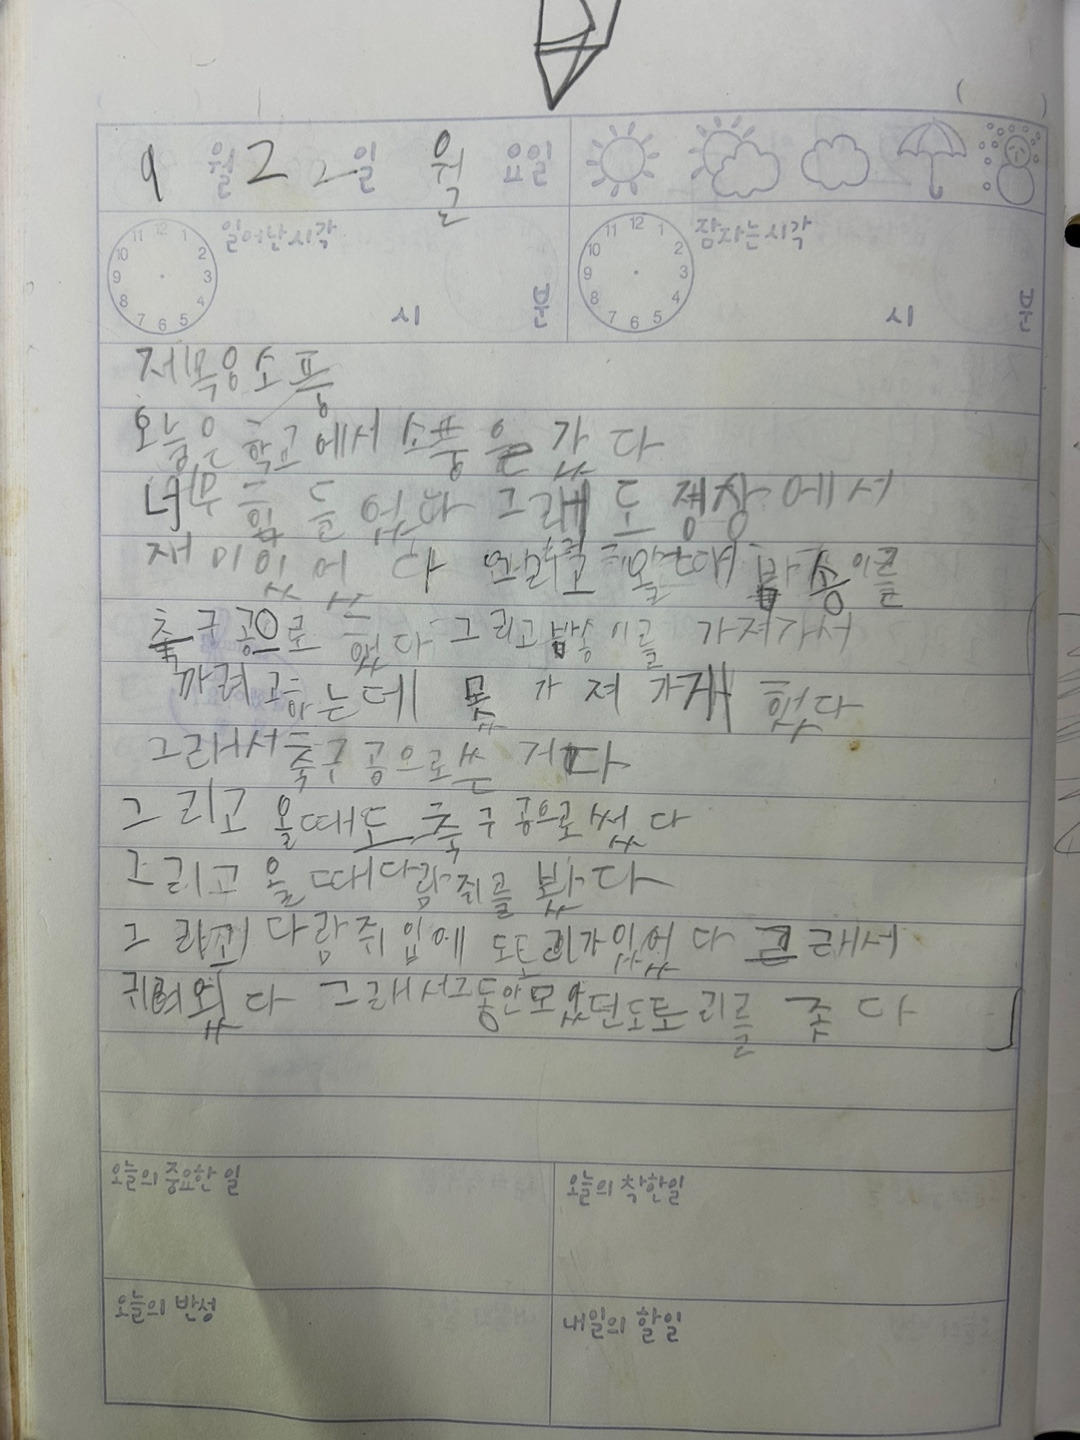 9월 22일 월요일
일어난시각
12 1 2 3 4 5 6 7 8 9 10 11
시 분
잠자는시각
12 1 2 3 4 5 6 7 8 9 10 11
시 분
제목응소풍
오늘은 학교에서 소풍을 갔다
너무 힘들었다 그래도 정상에서
재미있어 다 올때 밤송이를
축구공으로 했다 그리고 밤송이를 가져가서
까려고하는데 못 가져가게 했다
그래서 축구공으로쓴 거다
그리고 올때도 축구공으로 썼다
그리고 올때다람쥐를 봤다
다람쥐입에 도토리가있었다 그래서
귀여웠다 그래서그동안모았던도토리를 줏다
오늘의 중요한 일
오늘의 착한일
오늘의 반성
내일의 할일